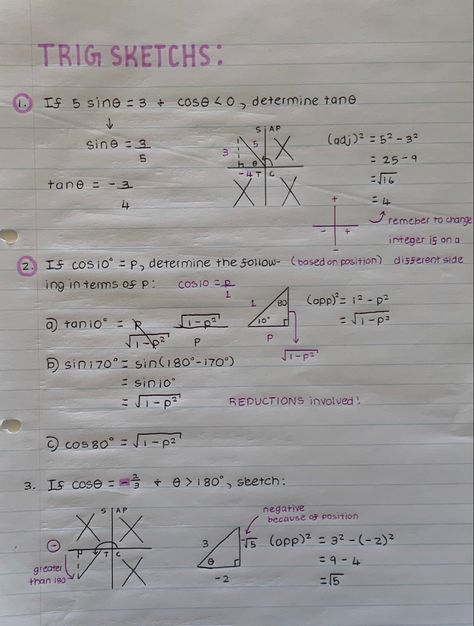 TRIG SKETCHS:
1. If 5 sinθ = 3 + cosθ < 0, determine tanθ
↓
sinθ = 3/5
tanθ = -3/4
S | A P
3
5
θ
-4 T | C
(adj)² = 5² - 3²
= 25 - 9
= √16
= 4
remeber to change
integer if on a
different side
(based on position)
+
- +
-
2. If cos10° = P, determine the follow-
ing in terms of P: cos10 = P/1
1
80
10°
P
√1-p²
(opp)² = 1² - p²
= √1-p²
a) tan10° = P/√1-p² √1-p²/P
b) sin170° = sin(180° - 170°)
= sin10°
= √1-p²
REDUCTIONS involved!
c) cos80° = √1-p²
3. If cosθ = -2/3 + θ > 180°, sketch:
S | A P
T | C
-
greater
than 180
3
θ
-2
-√5
negative
because of position
(opp)² = 3² - (-2)²
= 9 - 4
= √5